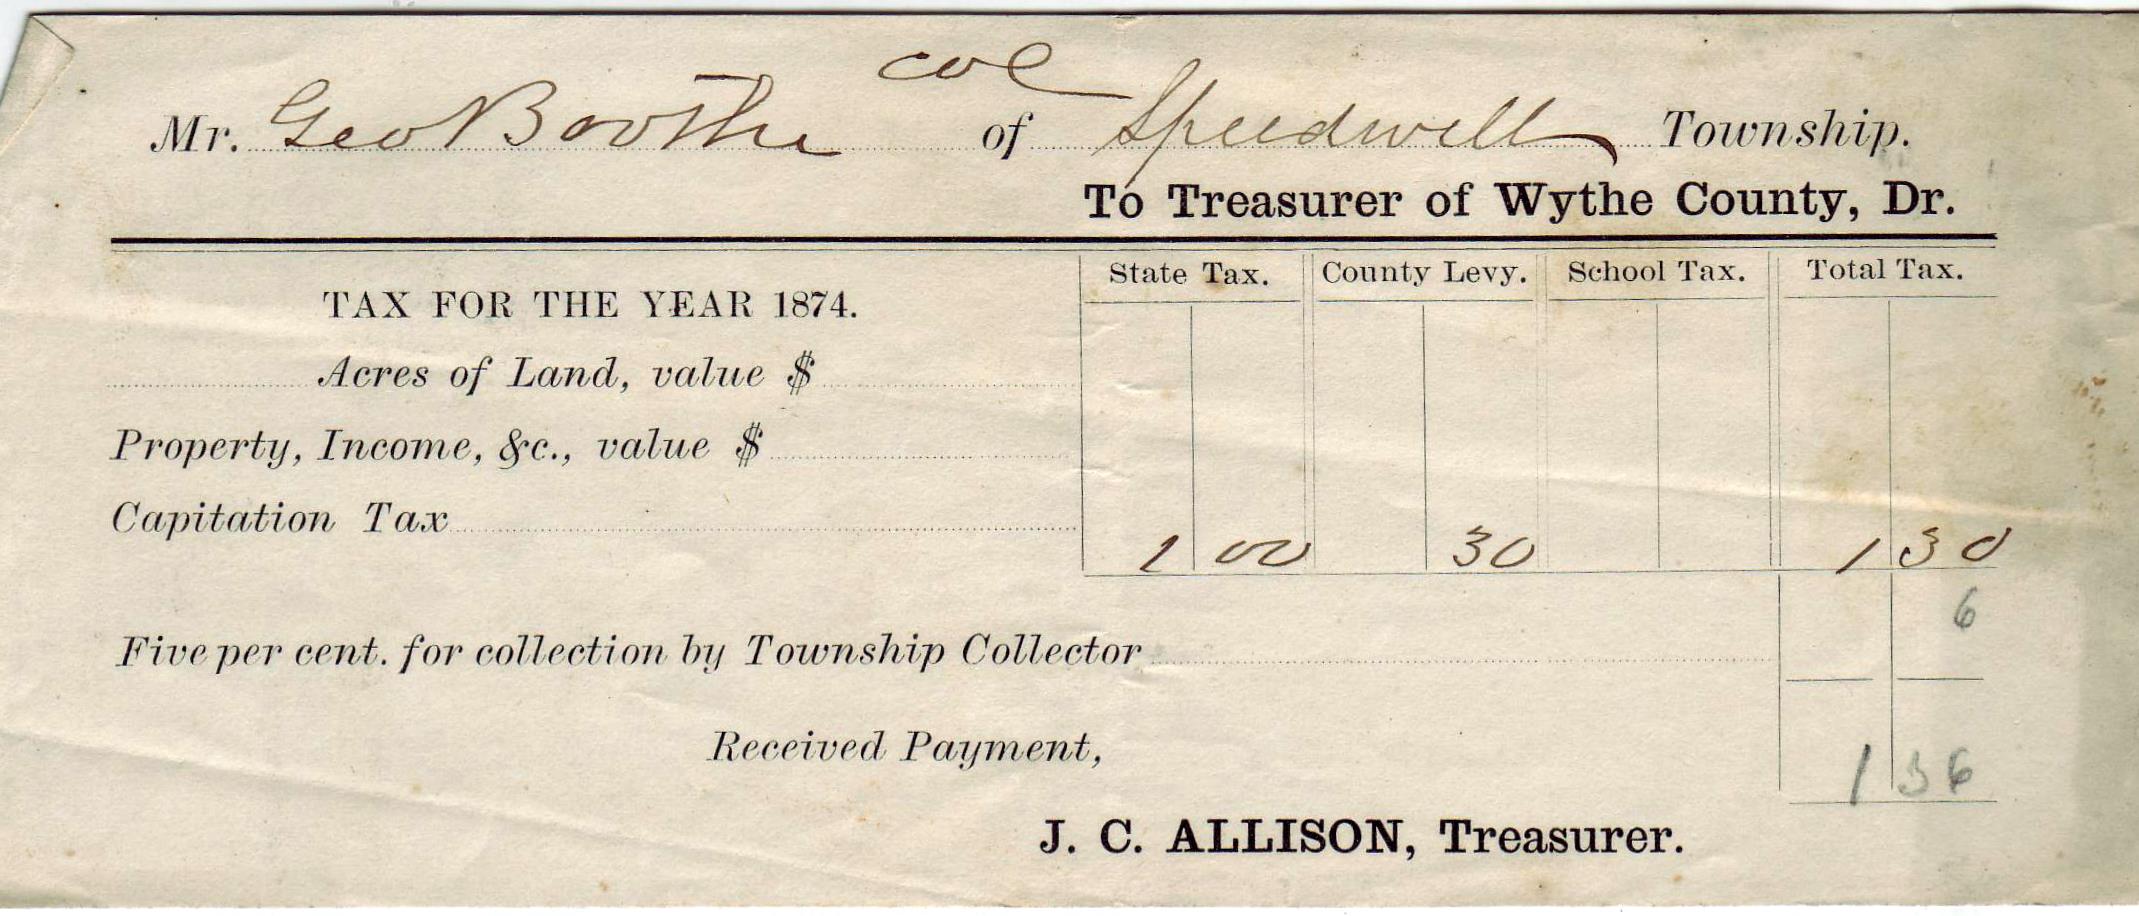 col
Mr. Geo Boothe of Speedwell Township.
To Treasurer of Wythe County, Dr.
State Tax. County Levy. School Tax. Total Tax.
TAX FOR THE YEAR 1874.
Acres of Land, value $
Property, Income, &c., value $
Capitation Tax 1 00 30 1 30
6
Five per cent. for collection by Township Collector
Received Payment,
1 36
J. C. ALLISON, Treasurer.